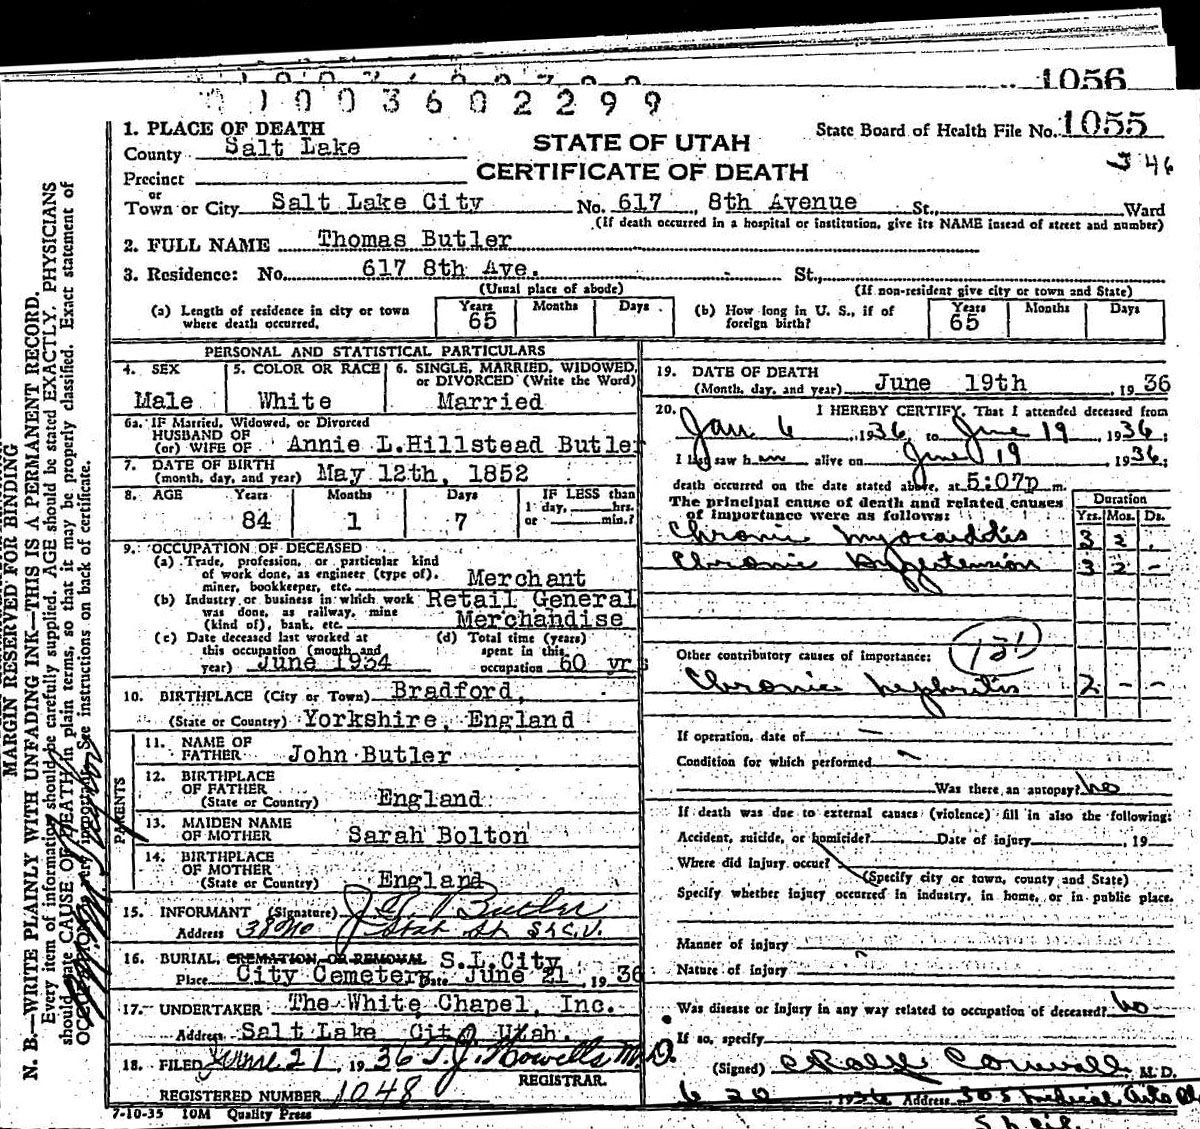 1056
01003602299
State Board of Health File No. 1055
346
STATE OF UTAH
CERTIFICATE OF DEATH
1. PLACE OF DEATH
County Salt Lake
Precinct
or
Town or City Salt Lake City No. 617 8th Avenue St., Ward
(If death occurred in a hospital or institution, give its NAME insead of street and number)
2. FULL NAME Thomas Butler
3. Residence: No. 617 8th Ave. St.,
(Usual place of abode) (If non-resident give city or town and State)
(a) Length of residence in city or town where death occurred. Years 65 Months Days
(b) How long in U. S., if of foreign birth? Years 65 Months Days
PERSONAL AND STATISTICAL PARTICULARS
4. SEX Male
5. COLOR OR RACE White
6. SINGLE, MARRIED, WIDOWED, or DIVORCED (Write the Word) Married
6a. IF Married, Widowed, or Divorced
HUSBAND OF
(or) WIFE OF Annie L.Hillstead Butler
7. DATE OF BIRTH
(month, day, and year) May 12th, 1852
8. AGE Years 84 Months 1 Days 7 IF LESS than 1 day, hrs. or min.?
9. OCCUPATION OF DECEASED
(a) Trade, profession, or particular kind
of work done, as engineer (type of),
miner, bookkeeper, etc. Merchant
(b) Industry or business in which work
was done, as railway, mine
(kind of), bank, etc. Retail General Merchandise
(c) Date deceased last worked at
this occupation (month and
year) June 1934
(d) Total time (years)
spent in this
occupation 60 yrs
10. BIRTHPLACE (City or Town) Bradford,
(State or Country) Yorkshire, England
PARENTS
11. NAME OF
FATHER John Butler
12. BIRTHPLACE
OF FATHER
(State or Country) England
13. MAIDEN NAME
OF MOTHER Sarah Bolton
14. BIRTHPLACE
OF MOTHER
(State or Country) England
15. INFORMANT (Signature) Butler
Address 38 No State St. S.L.C.U.
16. BURIAL, CREMATION, OR REMOVAL S.L.City
Place City Cemetery Date June 21, 1936
17. UNDERTAKER The White Chapel, Inc.
Address Salt Lake City Utah.
18. FILED June 21, 1936 T.J. Howells M.D.
REGISTRAR.
REGISTERED NUMBER 1048
7-10-35 10M Quality Press
19. DATE OF DEATH
(Month, day, and year) June 19th, 1936
20. I HEREBY CERTIFY, That I attended deceased from
Jan 6, 1936, to June 19, 1936;
I last saw him alive on June 19, 1936;
death occurred on the date stated above, at 5:07p m.
The principal cause of death and related causes
of importance were as follows:
Duration
Yrs. Mos. Ds.
Chronic myocarditis 3 2 -
Chronic Hypertension 3 2 -
131
Other contributory causes of importance:
Chronic nephritis 2 - -
If operation, date of —
Condition for which performed
Was there an autopsy? no
If death was due to external causes (violence) fill in also the following:
Accident, suicide, or homicide? Date of injury , 19
Where did injury occur?
(Specify city or town, county and State)
Specify whether injury occurred in industry, in home, or in public place.
Manner of injury
Nature of injury
Was disease or injury in any way related to occupation of deceased? no
If so, specify
(Signed) Cornwall M. D.
6 20 1936 Address 305 Medical Arts
MARGIN RESERVED FOR BINDING
N. B.—WRITE PLAINLY WITH UNFADING INK—THIS IS A PERMANENT RECORD.
Every item of information should be carefully supplied. AGE should be stated EXACTLY. PHYSICIANS
should state CAUSE OF DEATH in plain terms, so that it may be properly classified. Exact statement of
OCCUPATION is very important. See instructions on back of certificate.